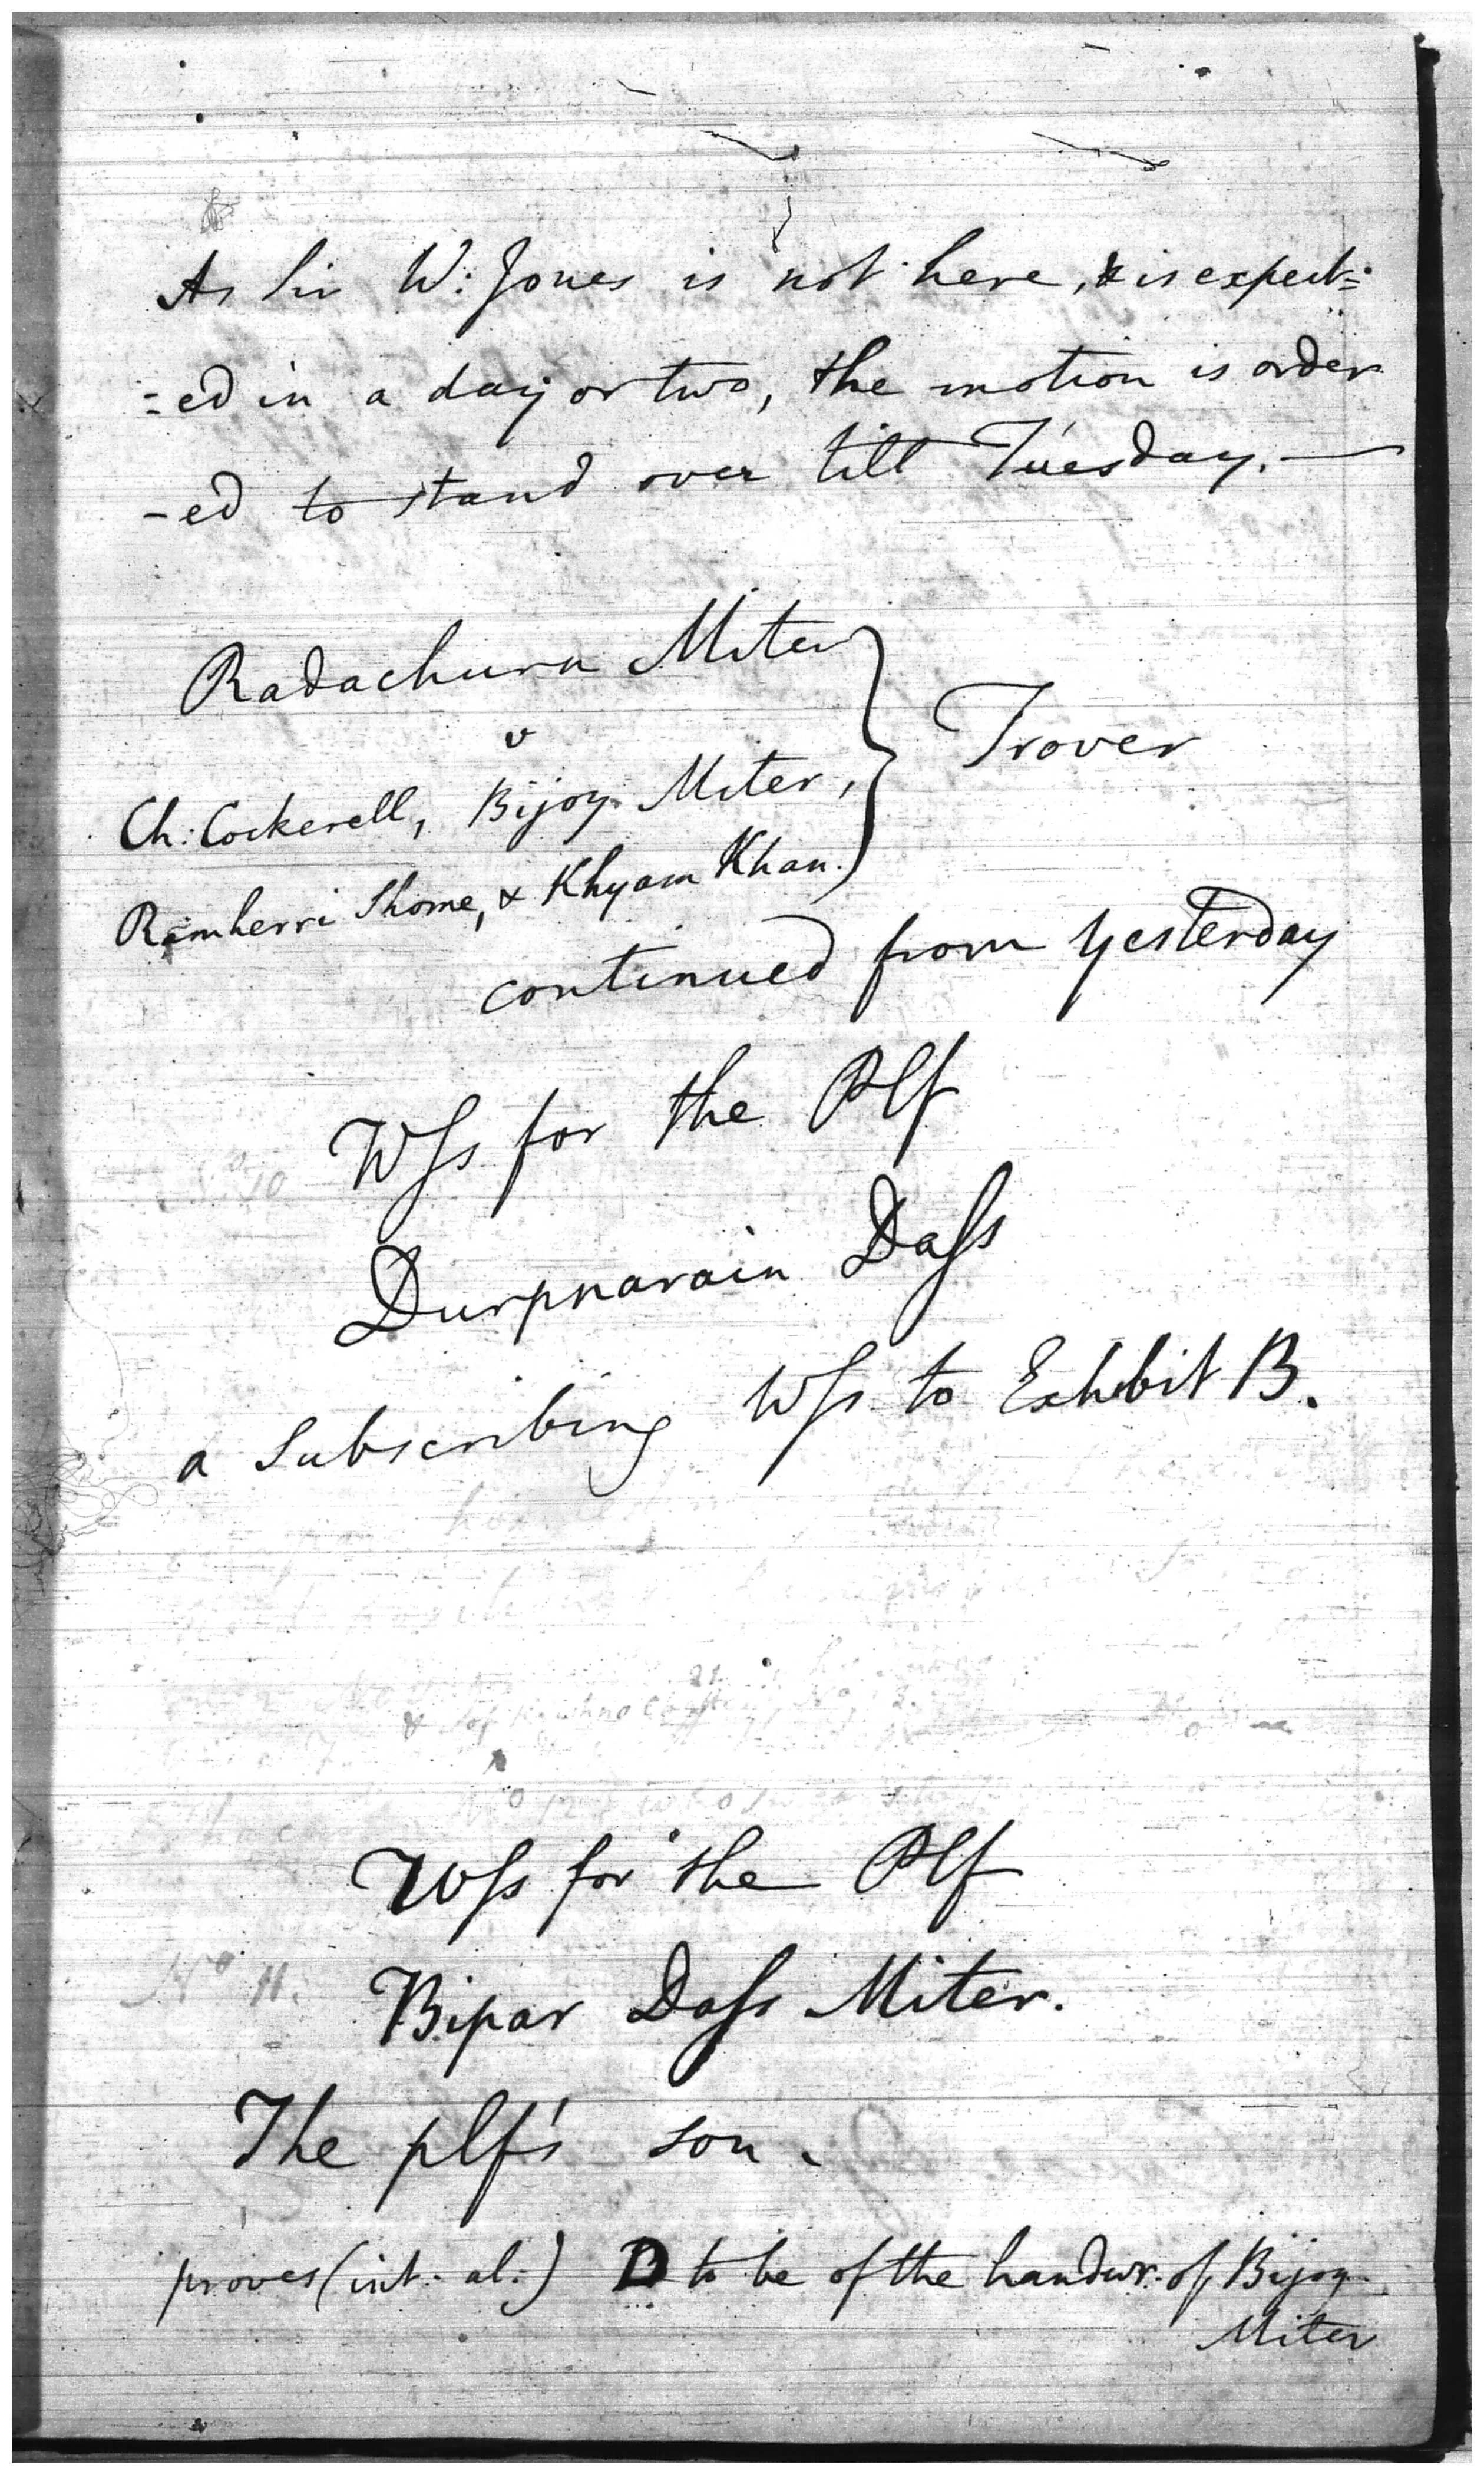 As Sir W: Jones is not here, & is expect=
=ed in a day or two, the motion is order
-ed to stand over till Tuesday. —
Radachurn Miter
v
Ch: Cockerell, Bijoy Miter,
Ramherri Shome, & Khyam Khan.
} Trover
continued from yesterday
Wſs for the Plf
No 10
Durpnarain Daſs
a Subscribing Wſs to Exhibit B.
Wſs for the Plf
No 11.
Bipar Daſs Miter.
The plf's son.
proves (int: al:) D to be of the handwr. of Bijoy
Miter